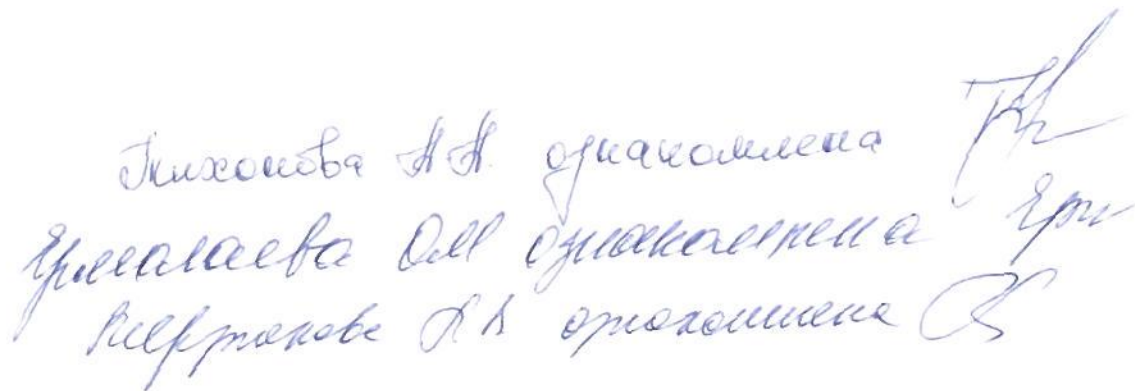 Тихонова Н.Н. ознакомлена
Ермалаева ОМ ознакомлена Ерм
ознакомлена